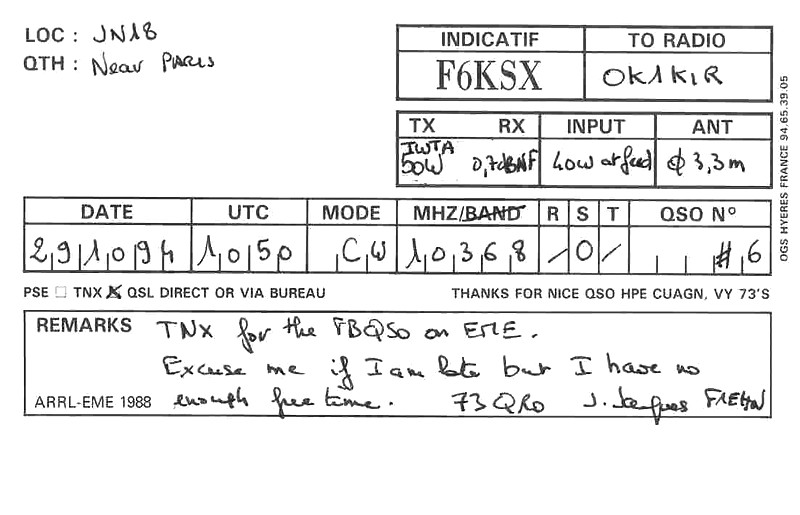 LOC : JN18
QTH : Near PARIS
INDICATIF TO RADIO
F6KSX OK1KIR
TX RX INPUT ANT
TWTA
50W 0,7dBNF 40W at feed φ 3,3m
DATE UTC MODE MHZ/BAND R S T QSO No
29 10 94 10 50 CW 10368 / O / # 6
PSE □ TNX ☒ QSL DIRECT OR VIA BUREAU THANKS FOR NICE QSO HPE CUAGN, VY 73'S
REMARKS TNX for the FBQSO on EME.
Excuse me if I am late but I have no
ARRL-EME 1988 enough free time. 73 QRO J. Jacques
OGS HYERES FRANCE 94.65.39.05